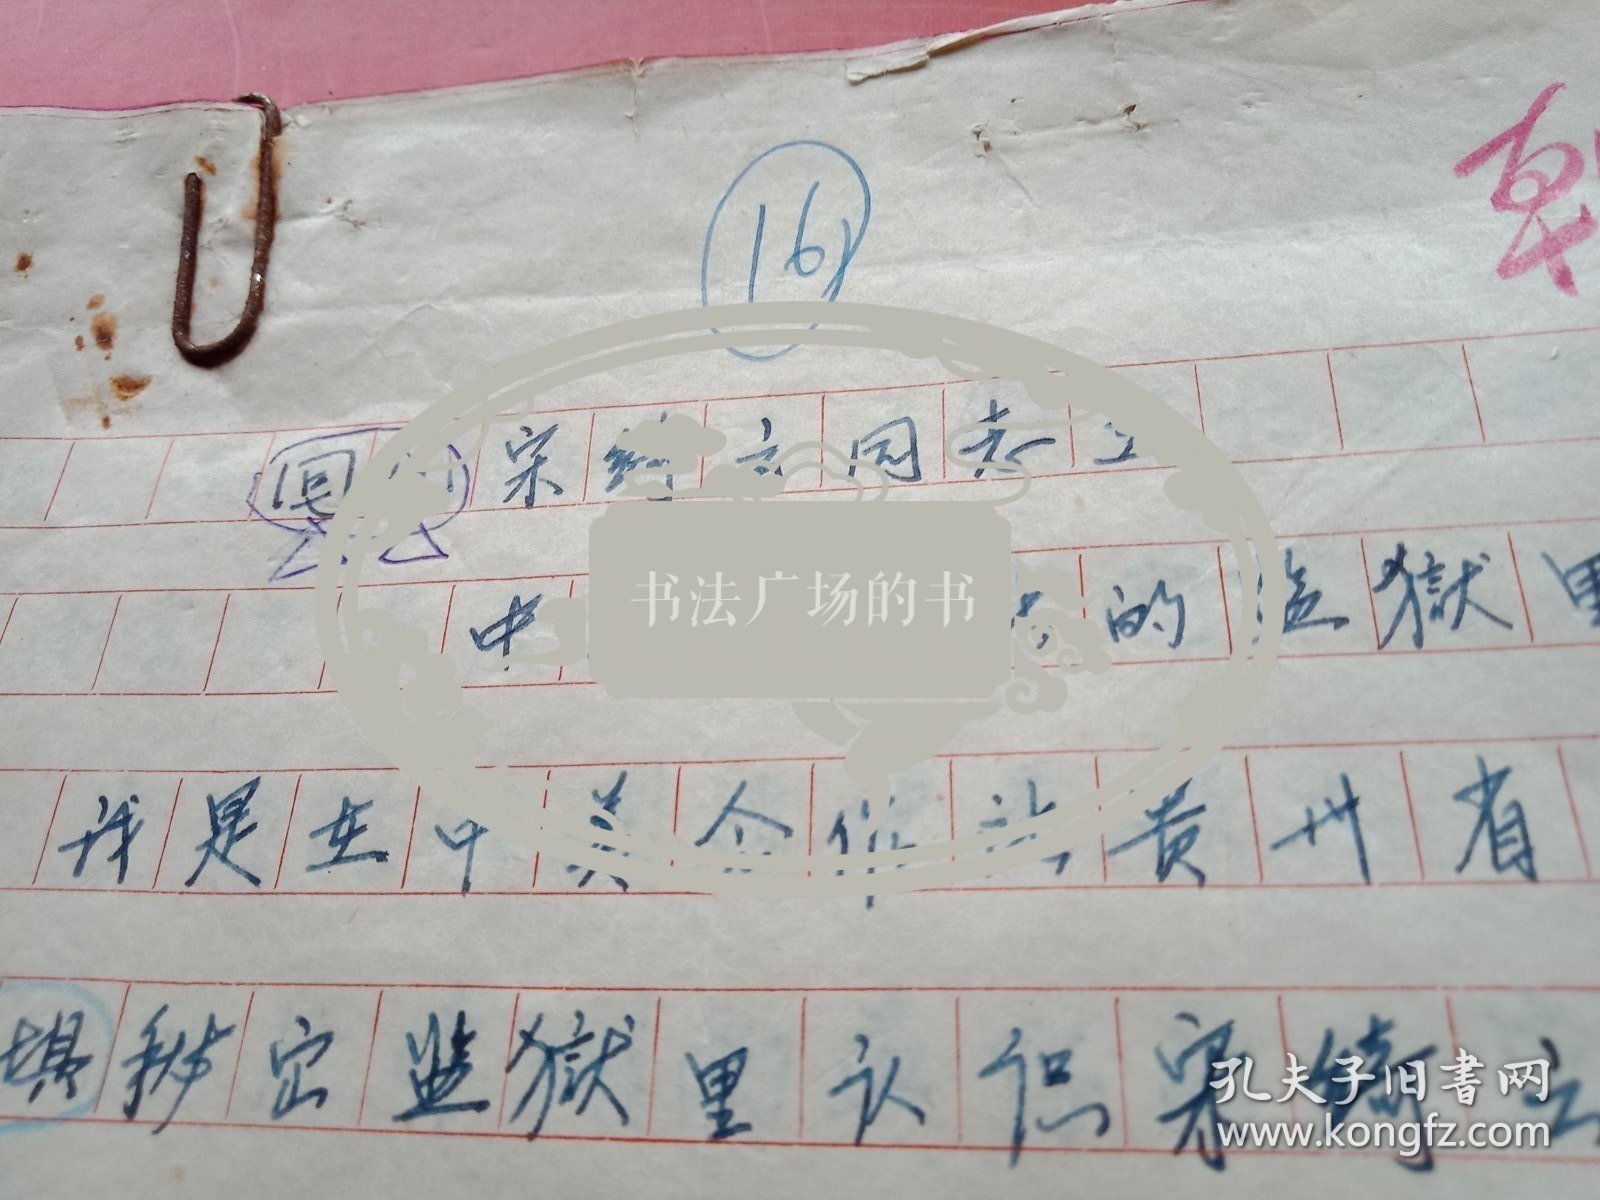 16
回忆宋绮云同志
中的监獄里
我是在中美合作社贵州省
秘密监獄里认识宋绮云
书法广场的书
孔夫子旧書网
www.kongfz.com